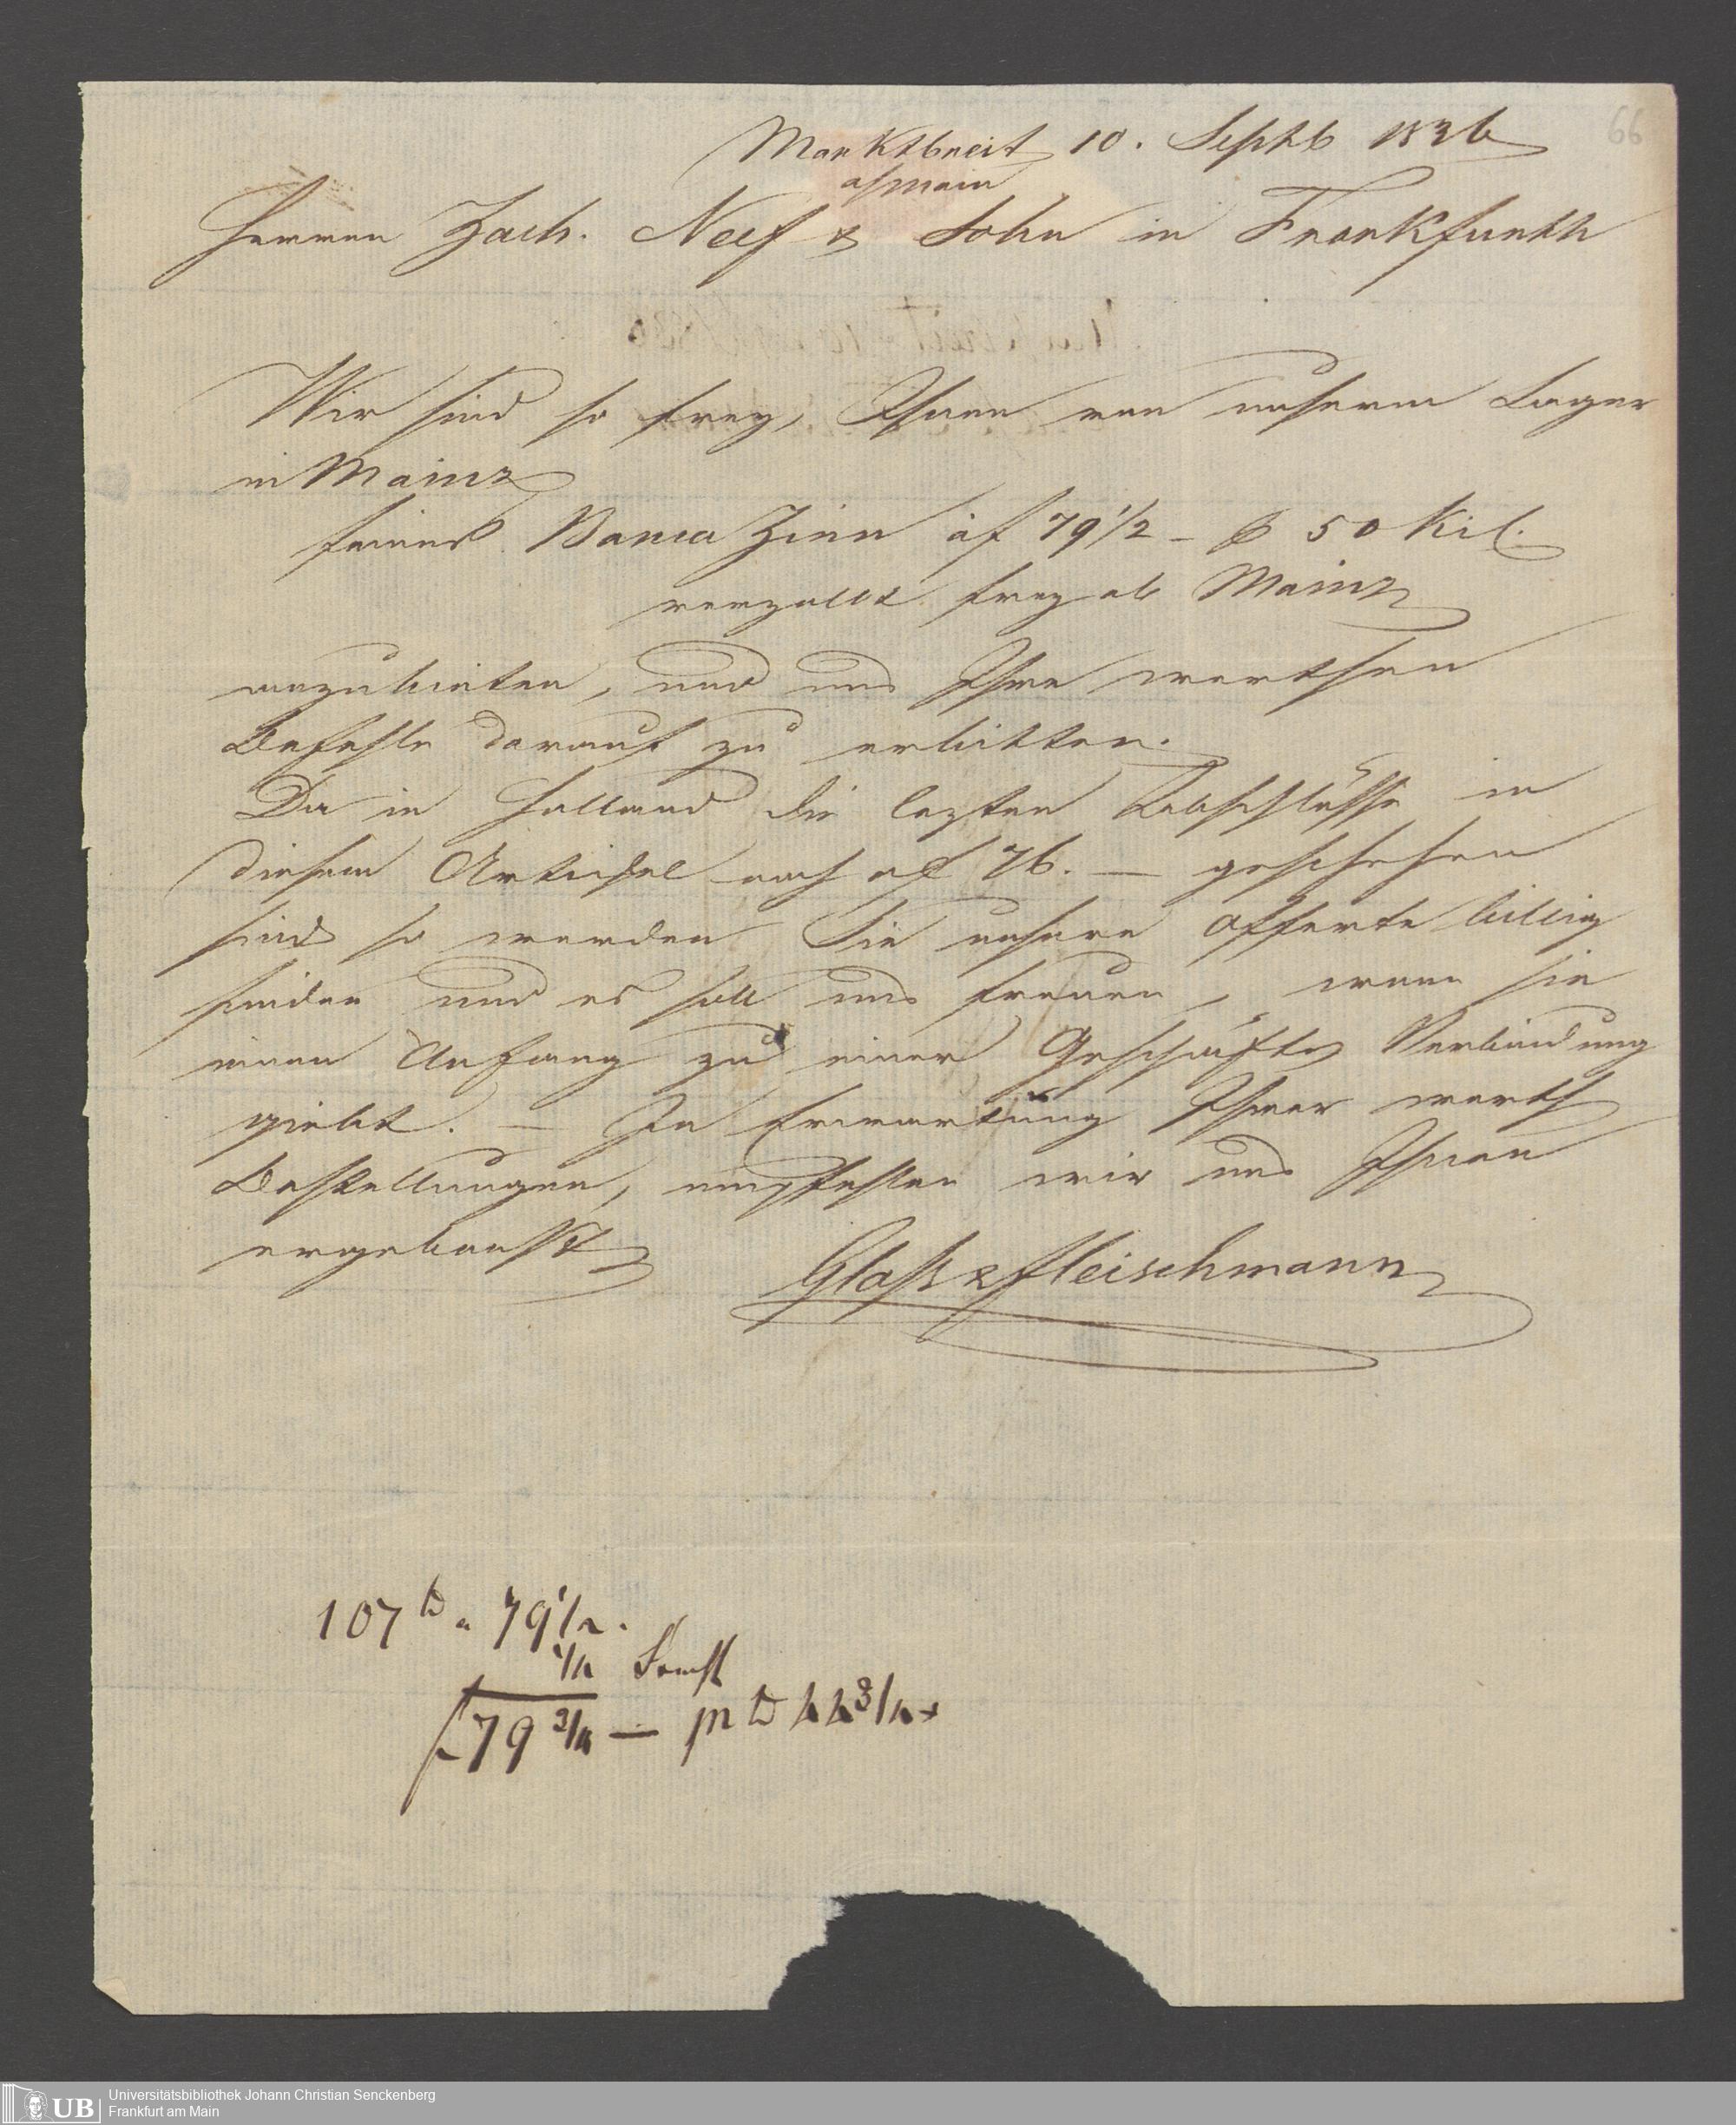 66
Marktbreit 10. Septb 1836
a/main
Herren Zach. Neef & Sohn in Frankfurth
Wir sind so frey, Ihnen von unserm Lager
in Mainz
feines Banca Zinn à f 79 1/2 – p 50 Kil.
verzollt frey ab Mainz
anzubieten, und uns Ihre werthen
Befehle darauf zu erbitten.
Da in Holland die lezten Abschlüsse in
diesem Artickel noch a f 46. — geschehen
sind so werden Sie unsere Offerte billig
finden und es soll uns freuen, wenn sie
einen Anfang zu einer Geschäfts Verbindung
giebt. — In Erwartung Ihrer werth
Bestellungen, empfehlen wir uns Ihnen
ergebenst
Glaß & Fleischmann
107 ℔ a 79 1/2.
1/4
f 79 3/4 — pr ℔ 44 3/4 x
Universitätsbibliothek Johann Christian Senckenberg
UB Frankfurt am Main